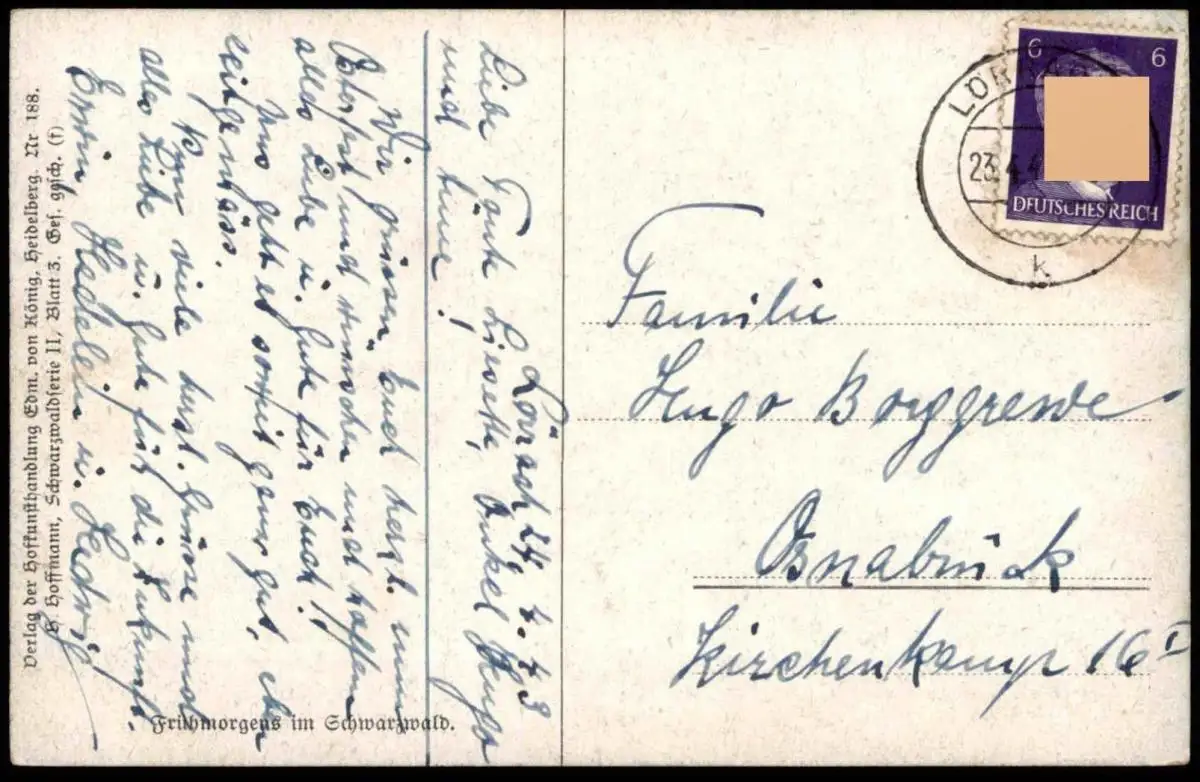 Verlag der Hofkunsthandlung Edm. von König, Heidelberg. Nr 188.
H. Hoffmann, Schwarzwaldserie II, Blatt 3. Ges. gesch. (f)
Frühmorgens im Schwarzwald.
Lörrach 24. 4. 43
Liebe Tante Liesette, Onkel Hugo
und
Wir grüssen Euch herzl. zum
Osterfest und wünschen und hoffen
alles Liebe u. Gute für Euch!
Uns geht es soweit ganz gut, eben
zeitgemäss.
Nun viele herzl. Grüsse und
alles Liebe u. Gute für die Zukunft.
Erwin, Heidelein u. Hedwig
6 6
DEUTSCHES REICH
LÖR
23.4.4
k
Familie
Hugo Borggrewe
Osnabrück
Kirchenkamp 16 I